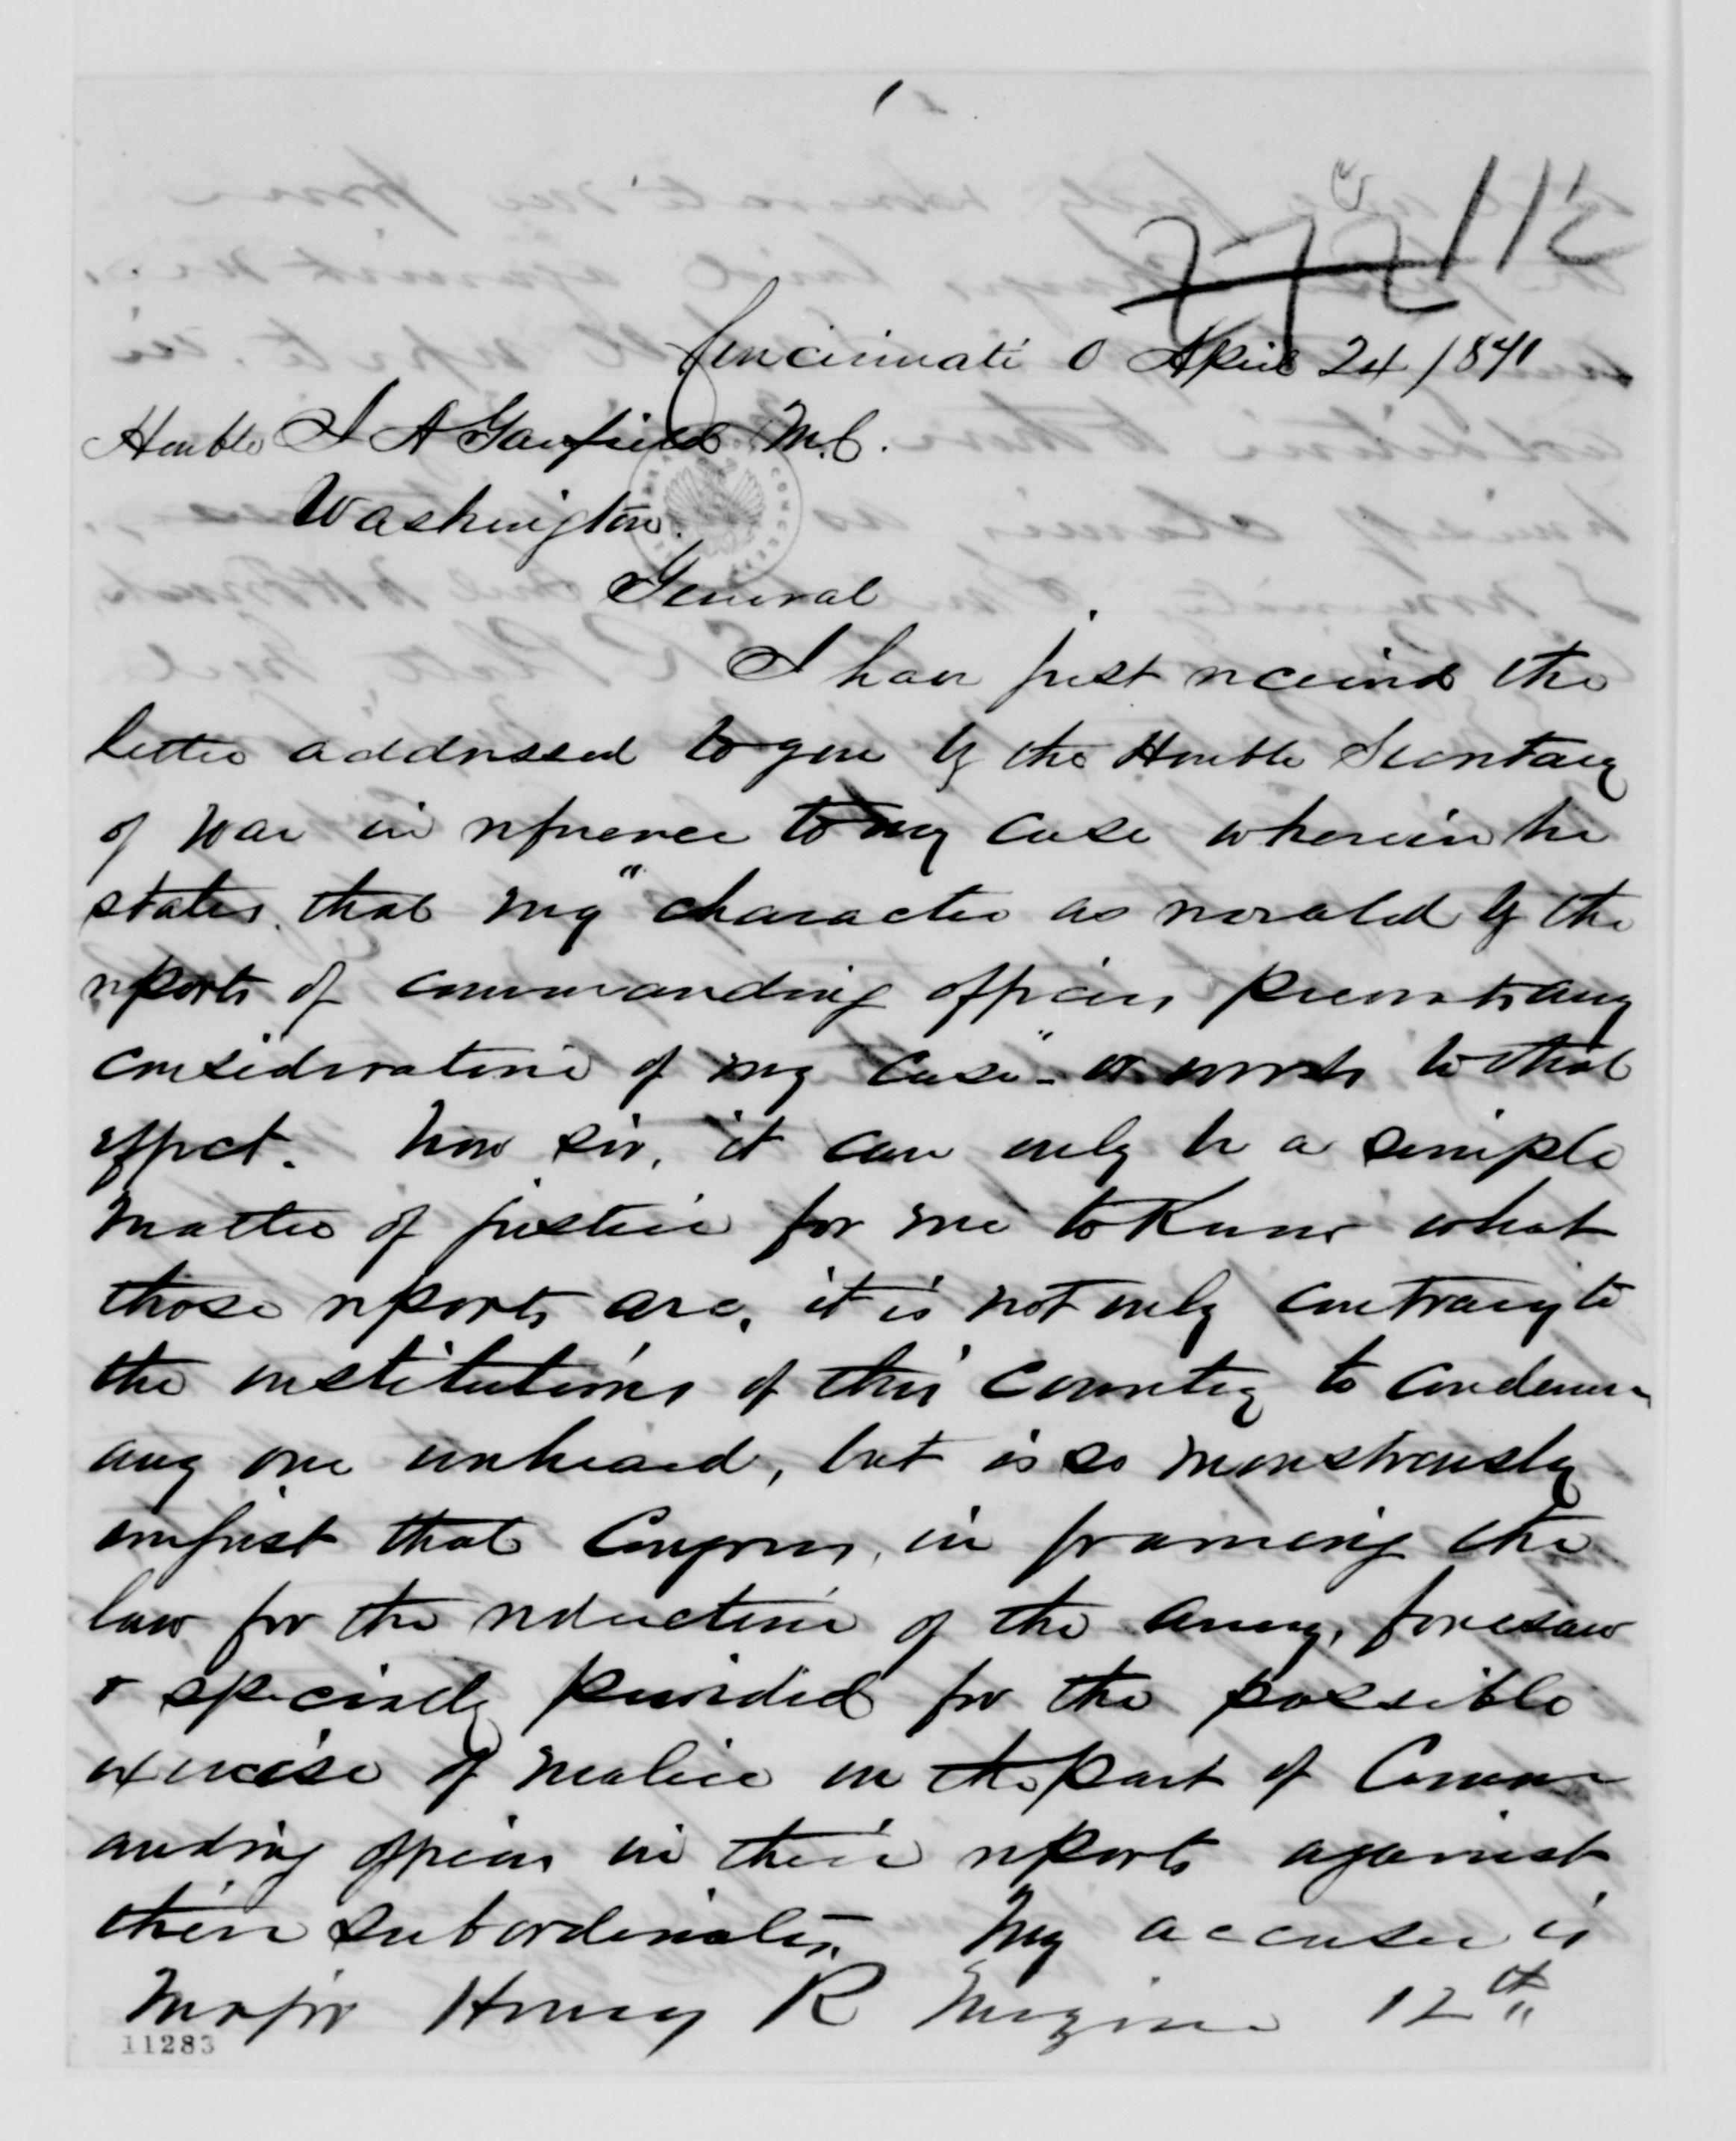 1
272 112
Cincinnati O April 24 / 871
Honble J A Garfield M.C.
Washington.
General
I have just received the
letter addressed to you by the Honble Secretary
of War in reference to my case wherein he
states, that my "character as revealed by the
reports of commanding officers prevents any
consideration of my case" - or words to that
effect. Now sir, it can only be a simple
matter of justice for me to know what
those reports are, it is not only contrary to
the institutions of this Country to condemn
any one unheard, but is so monstrously
unjust that Congress, in framing the
law for the reduction of the army, foresaw
& specially provided for the possible
exercise of malice on the part of Comm
anding officers in their reports against
their subordinates. My accuser is
Major Henry R Mizner 12th
11283